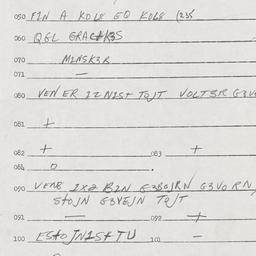 050 FIN A KOLE EQ KOLE (235
060 QGL GRACKKS
070 MINSK3R
071 —
080 VEN ER IZ NIST TOJT VOLTSR G3VO
081 +
082 + 083 +
084 0 .
090 VENE IXZ BIN G3BOJRN G3VORN,
STOJN G3VEJN TOJT
091 — 092 +
100 ESTOJNIST TU 101 —